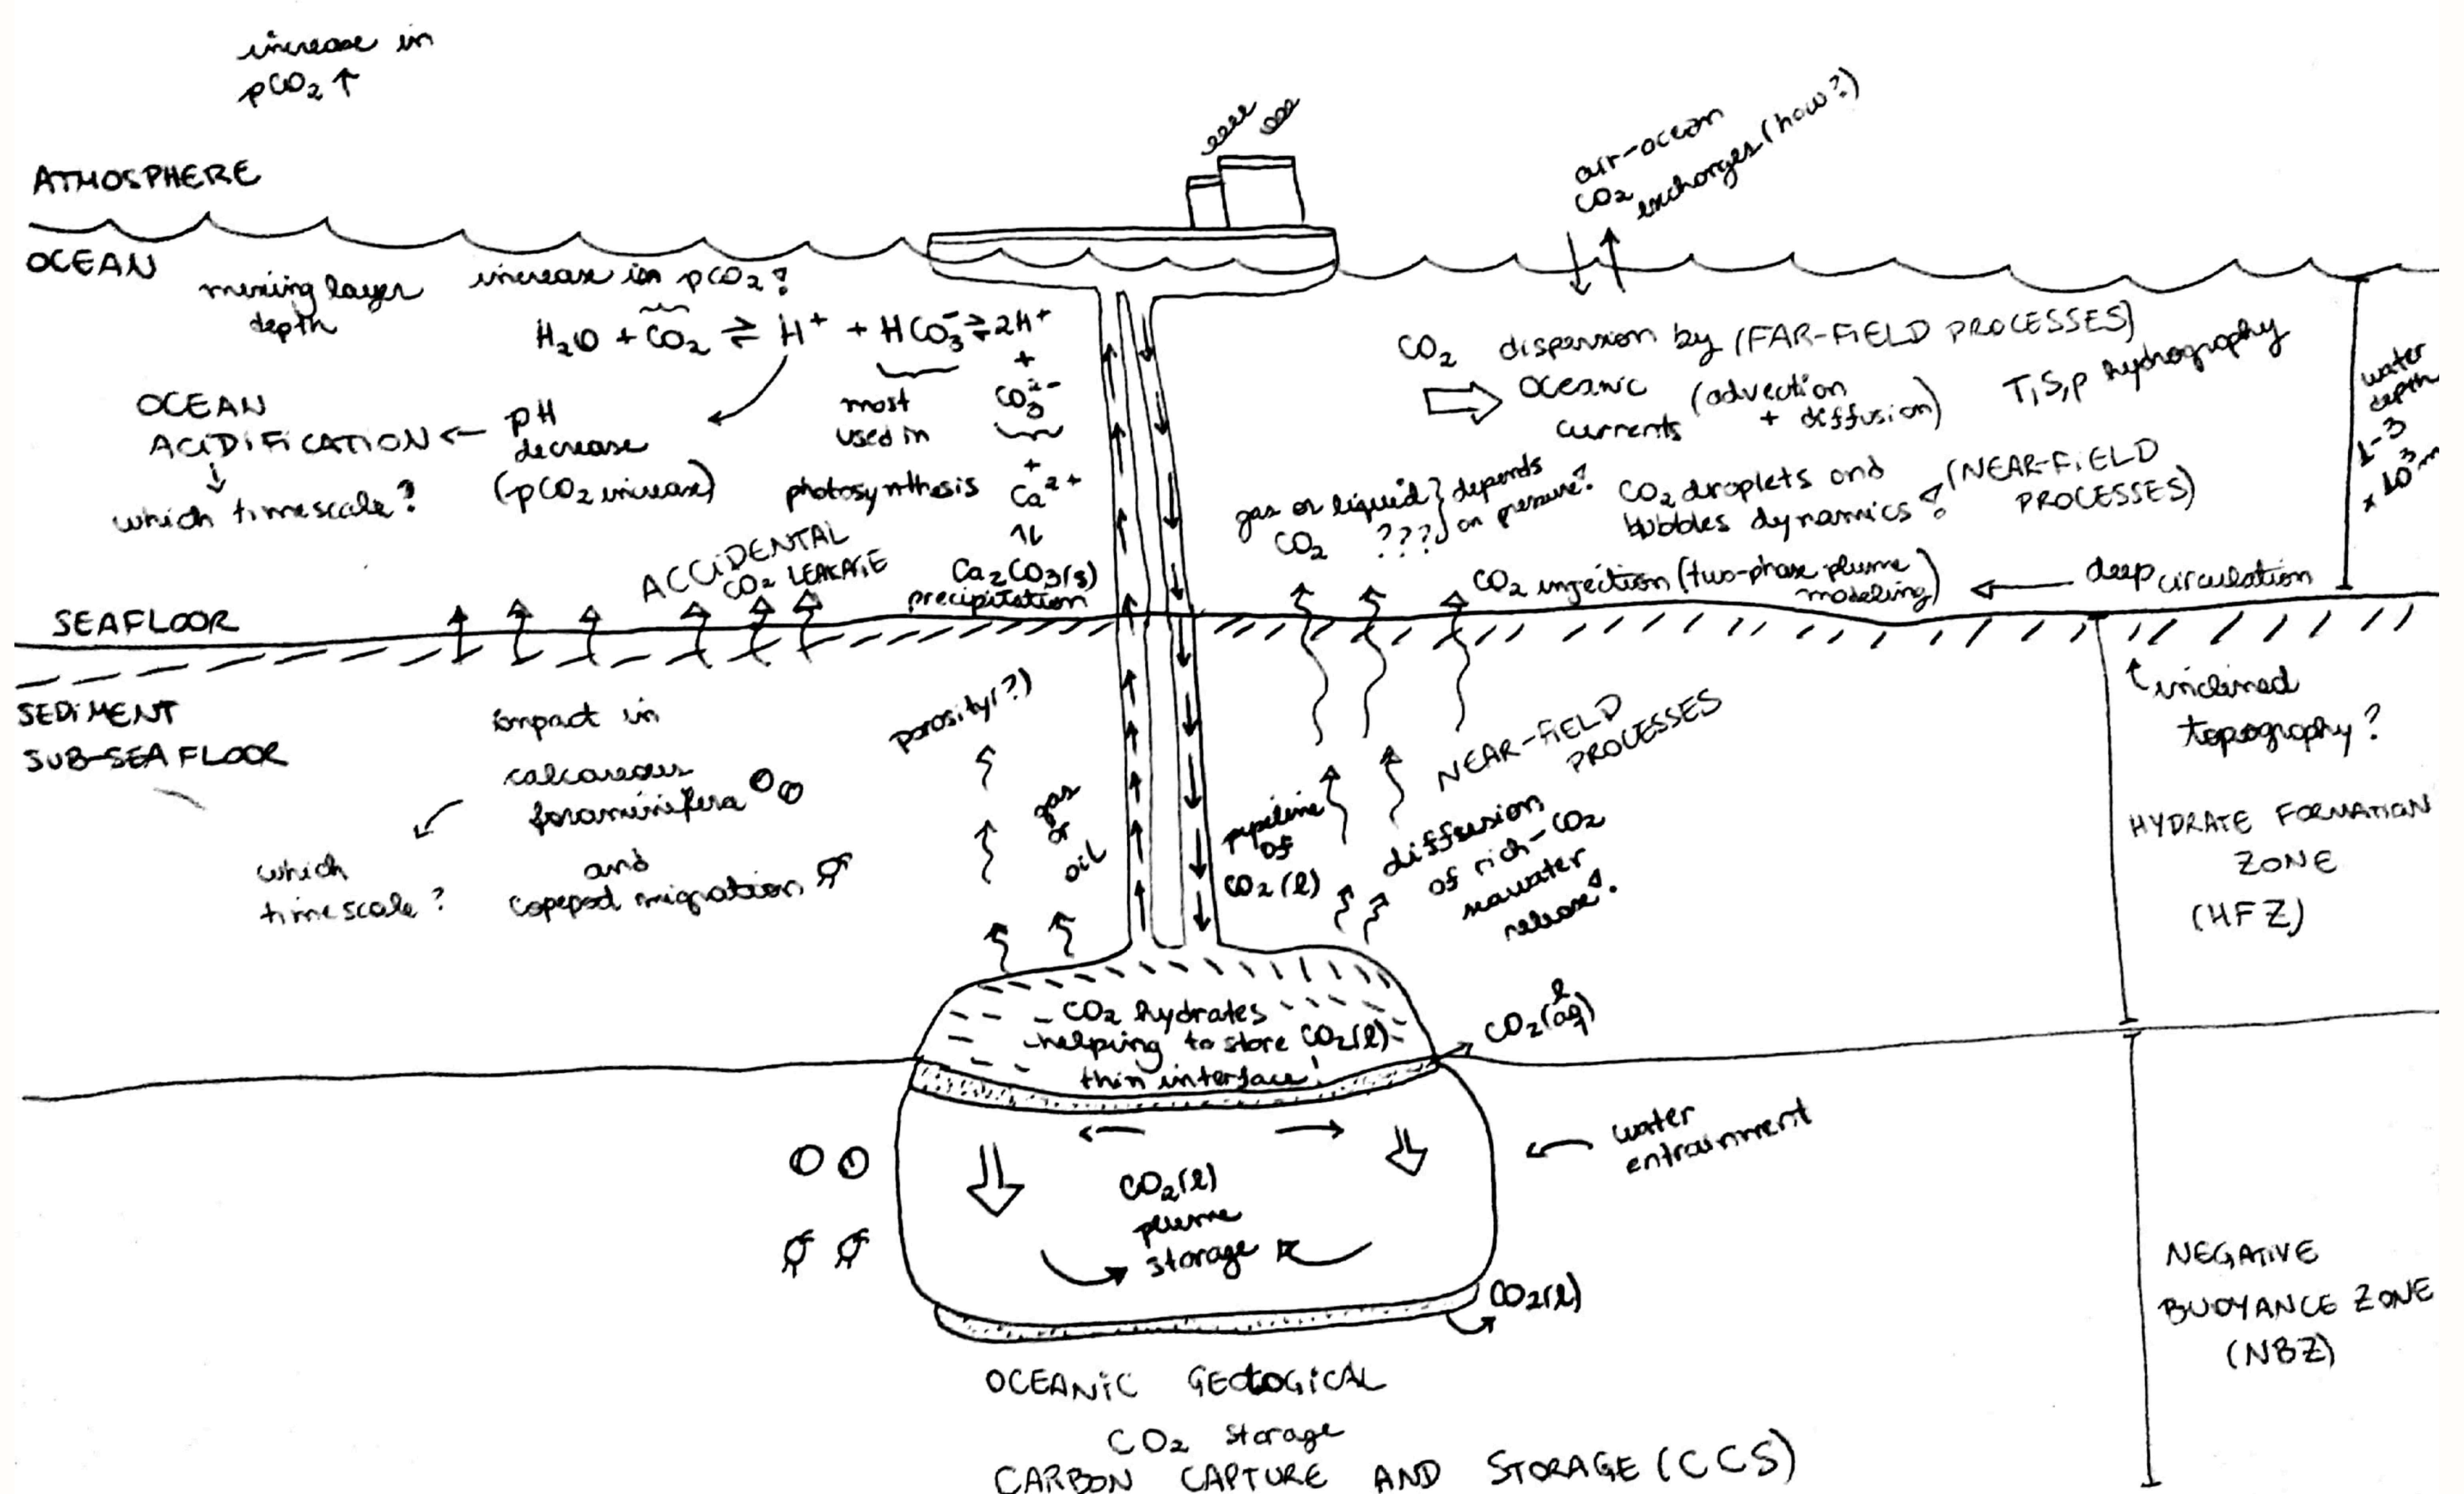 increase in
pCO₂ ↑
ATMOSPHERE
OCEAN
mixing layer
depth
increase in pCO₂?
H₂O + CO₂ ⇌ H⁺ + HCO₃⁻ ⇌ 2H⁺
+
CO₃²⁻
+
Ca²⁺
⇌
Ca₂CO₃(s)
precipitation
most
used in
photosynthesis
pH
decrease
(pCO₂ increase)
OCEAN
ACIDIFICATION ←
↓
which timescale?
ACCIDENTAL
CO₂ LEAKAGE
air-ocean
CO₂ exchanges (how?)
CO₂ dispersion by (FAR-FIELD PROCESSES)
⇒ oceanic
currents
(advection
+ diffusion)
T,S,p hydrography
water
depth
1-3
x 10³ m
gas or liquid } depends
CO₂ ??? } on pressure?
CO₂ droplets and
bubbles dynamics?
(NEAR-FIELD
PROCESSES)
CO₂ injection (two-phase plume
modeling)
← deep circulation
SEAFLOOR
SEDIMENT
SUB-SEAFLOOR
impact in
calcareous
foraminifera
and
copepod migration
which
timescale?
porosity(?)
gas
or
oil
pipeline
of
CO₂(l)
NEAR-FIELD
PROCESSES
diffusion
of rich-CO₂
seawater
release?
inclined
topography?
HYDRATE FORMATION
ZONE
(HFZ)
CO₂ hydrates
helping to store CO₂(l)
thin interface!
l
CO₂(aq)
water
entrainment
CO₂(l)
plume
storage
CO₂(l)
NEGATIVE
BUOYANCE ZONE
(NBZ)
OCEANIC GEOLOGICAL
CO₂ storage
CARBON CAPTURE AND STORAGE (CCS)